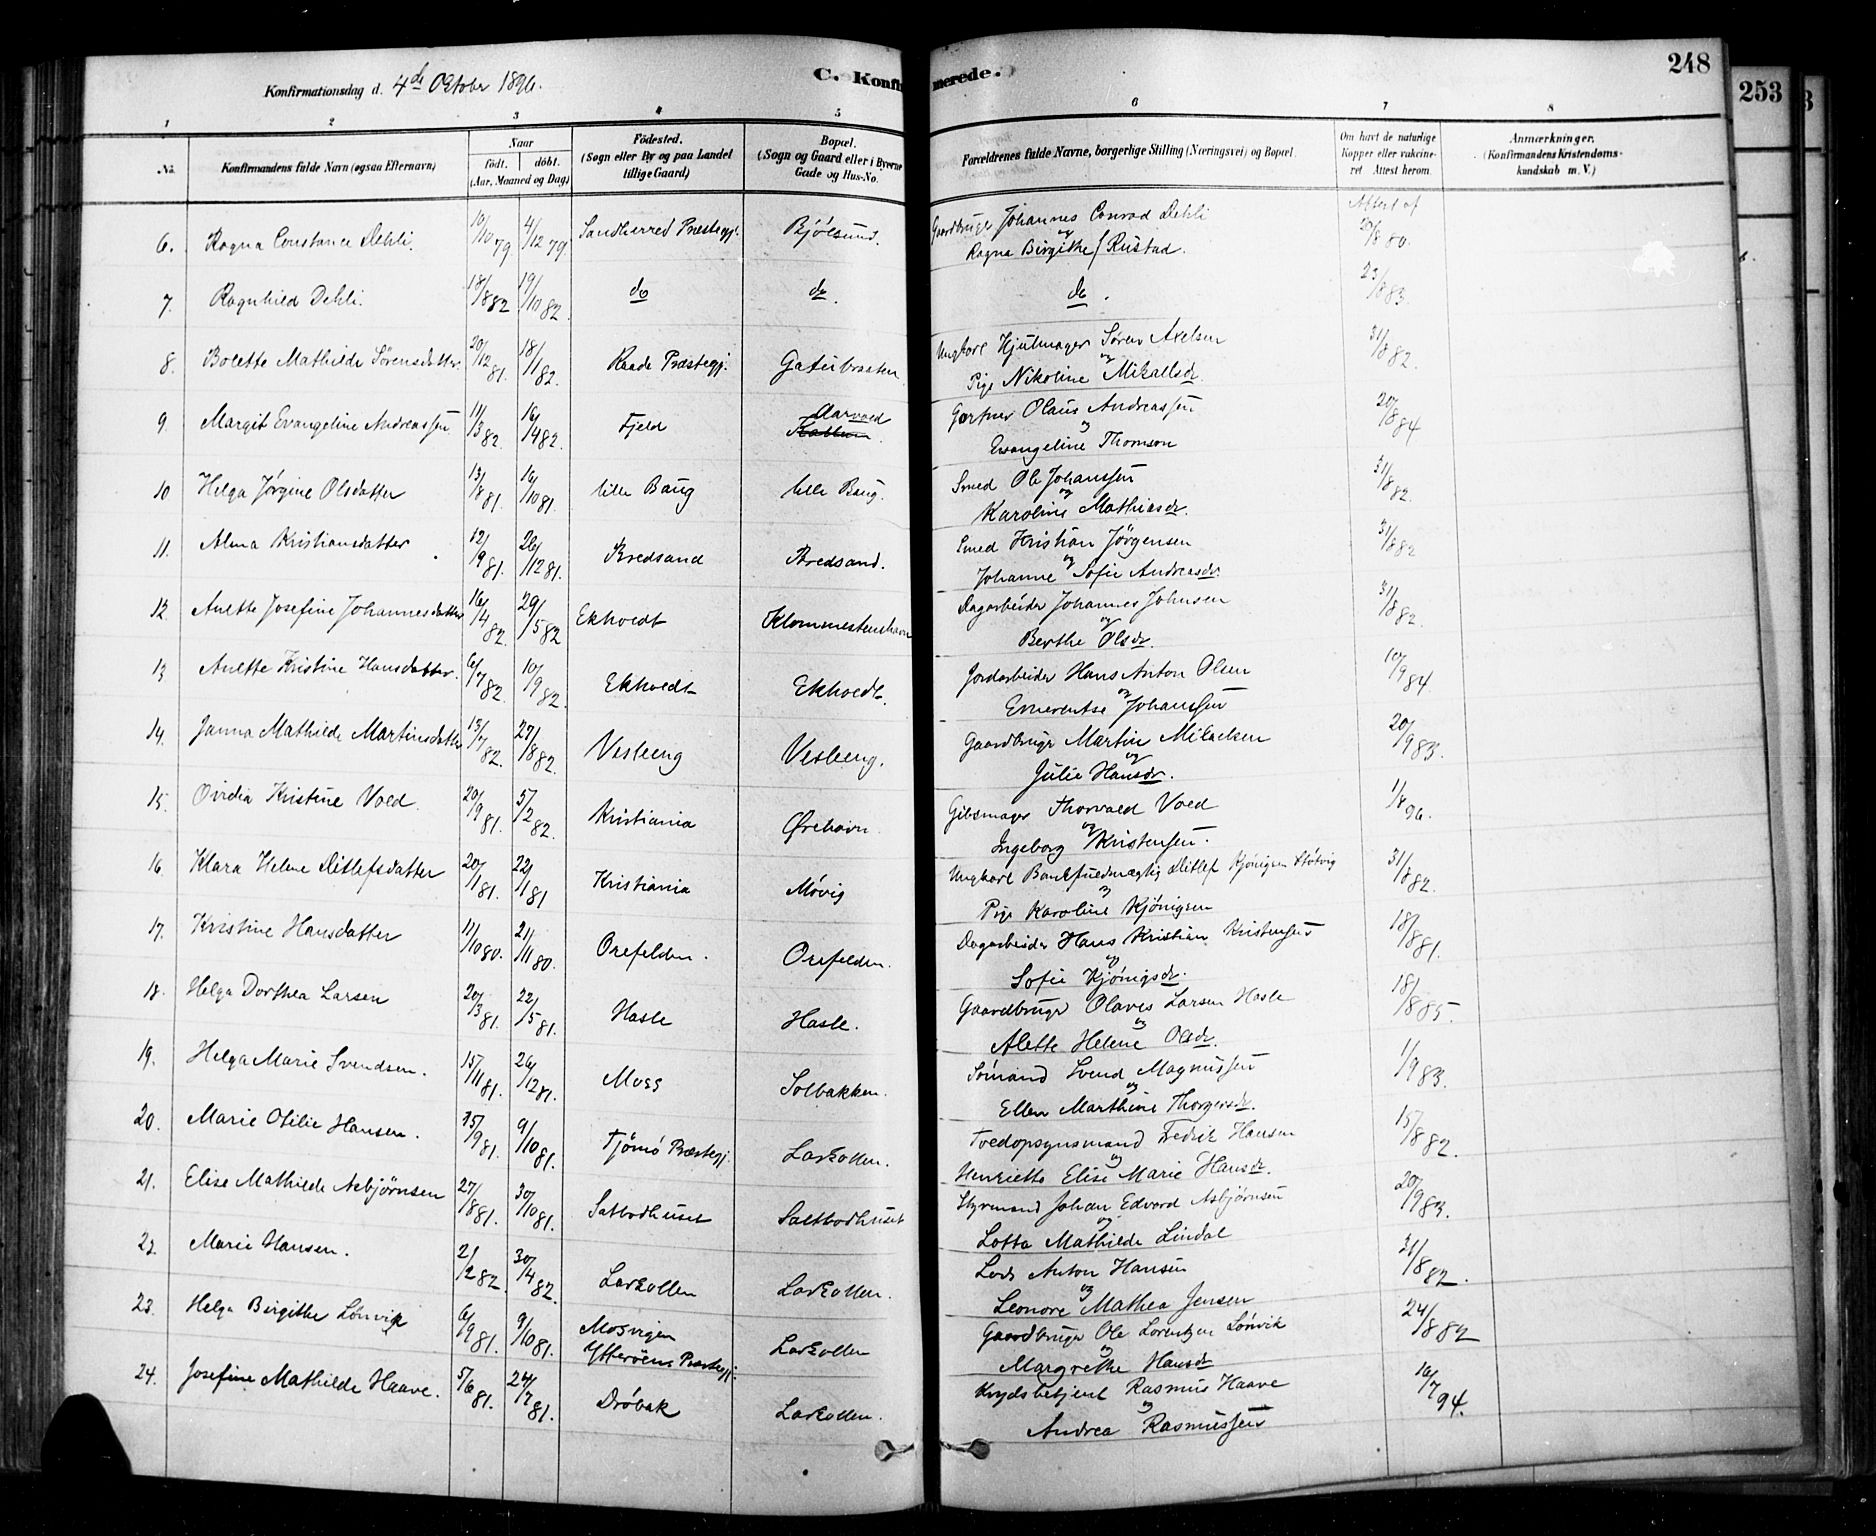 248
253
Konfirmationsdag d. 4de Oktober 1896.
C. Konfirmerede.
1 2 3 4 5 6 7 8
No. Konfirmandens fulde Navn (ogsaa Efternavn) Naar født. døbt. (Aar, Maaned og Dag) Fødested. (Sogn eller By og paa Landet tillige Gaard) Bopæl. (Sogn og Gaard eller i Byerne Gade og Hus-No. Forældrenes fulde Navne, borgerlige Stilling (Næringsvei) og Bopæl. Om havt de naturlige Kopper eller vakcineret. Attest herom. Anmærkninger. (Konfirmandens Kristendomskundskab m. V.)
6. Ragna Constance Dehli. 10/10 79 4/12 79. Sandherred Præstegj. Bjölsund. Gaardbruger Johannes Conrad Dehli Attest af 20/8 80.
og Ragna Birgithe f Rustad.
7. Ragnhild Dehli. 18/8 82 19/10 82. do do. do. 23/8 83.
8. Bolette Mathilde Sörensdatter 20/12 81. 18/1 82. Raade Præstegj. Gatubraaten Ungkarl Hjulmager Sören Axelsen 31/8 82.
og Pige Nikoline Mikaelsdr.
9. Margit Evangeline Andreassen 11/3 82. 16/4 82. Fjeld Aarvold Gartner Olaus Andreassen 20/8 84
og Evangeline Thomson
10 Helga Jörgine Olsdatter 13/8 81. 16/10 81. lille Baug lille Baug. Smed Ole Johanssen 31/8 82.
og Karoline Mathiasdr.
11. Alma Kristiansdatter 12/9 81. 26/12 81. Bredsand Bredsand. Smed Kristian Jörgensen 31/8 82
og Johanne Sofie Andreasdr.
12. Anette Josefine Johannesdatter 16/4 82. 29/5 82 Ekholdt Klommestenshavn Dagarbeider Johannes Johnsen 31/8 82.
og Berthe Olsdr.
13 Anette Kristine Hansdatter. 6/7 82. 10/9 82. Ekholdt Ekholdt. Jordarbeider Hans Anton Olsen 10/9 84.
og Emerentse Johanssen
14. Janna Mathilde Martinsdatter 13/7 82. 27/8 82. Vesleeng Vesleeng. Gaardbruger Martin Mikaelsen 20/9 83.
og Julie Hansdr.
15. Ovidia Kristine Vold. 20/9 81. 5/2 82. Kristiania Örehavn. Gibsmager Thorvald Vold 1/8 96.
og Ingeborg Kristensen.
16. Klara Helene Ditlefsdatter 20/1 81. 22/1 81 Kristiania Mövig Ungkarl Bankfuldmægtig Ditlef Kjönigsen Stötvig 31/8 82.
og Pige Karoline Kjönigsen
17. Kristine Hansdatter 11/10 80. 21/11 80. Orefelden. Orefelden. Dagarbeider Hans Kristian Kristensen 18/8 81.
og Sofie Kjönigsdr.
18. Helga Dorthea Larsen 20/3 81. 22/5 81. Hasle Hasle. Gaardbruger Olaves Larsen Hasle 18/8 85.
og Alette Helene Olsdr.
19. Helga Marie Svendsen. 15/11 81. 26/12 81. Moss Solbakken. Sömand Svend Magnussen 1/9 83.
og Ellen Marthine Thorgersdr.
20. Marie Otilie Hansen. 15/9 81. 9/10 81. Tjömö Præstegj. Larkollen. Toldopsynsmand Fredrik Hansen 15/8 82.
og Henriette Elise Marie Hansdr.
21. Elise Mathilde Asbjörnsen 27/8 81. 30/10 81. Saltbodhuset Saltbodhuset Styrmand Johan Edvard Asbjörnsen 20/9 83.
og Lotta Mathilde Lindal
22. Marie Hansen. 2/2 82. 30/4 82. Larkollen Larkollen. Lods Anton Hansen 31/8 82.
og Leonore Mathea Jensen
23. Helga Birgithe Lönvik 6/9 81. 9/10 81. Mosvigen Ytteröens Præstegj. Larkollen Gaardbruger Ole Lorentzen Lönvik 24/8 82
og Margrethe Hansdr
24. Josefine Mathilde Haave. 5/6 81. 24/7 81. Dröbak Larkollen. Krydsbetjent Rasmus Haave 16/7 94.
og Andrea Rasmussen